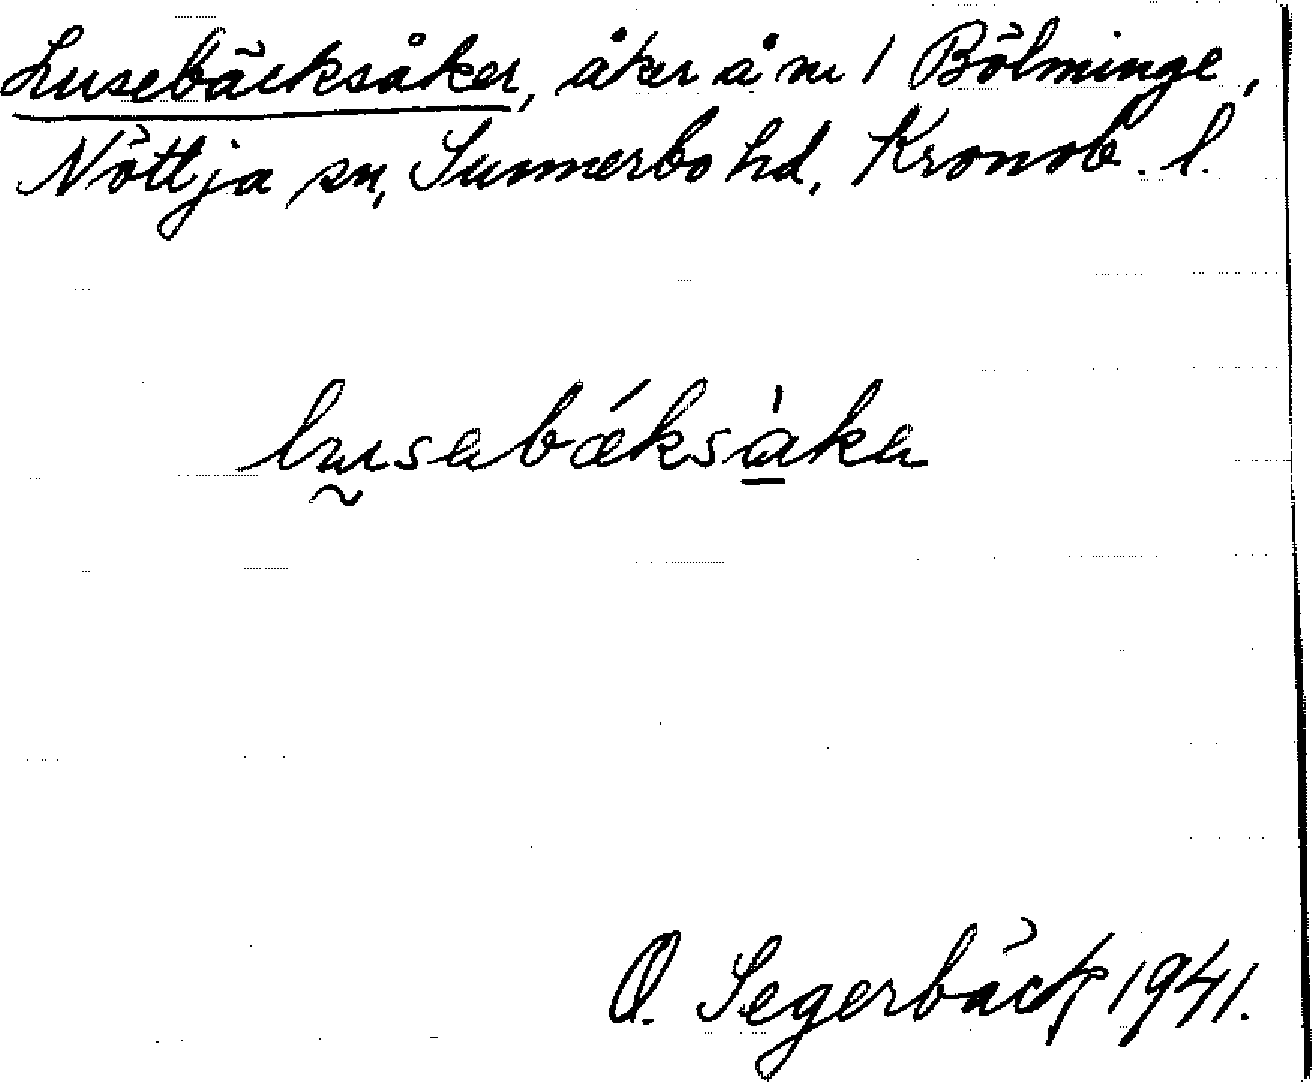 Lusebäcksåker, åker å nr 1 Bölminge,
Nöttja sn, Sunnerbo hd, Kronob. l.
lusabäksåka
O. Segerbäck 1941.